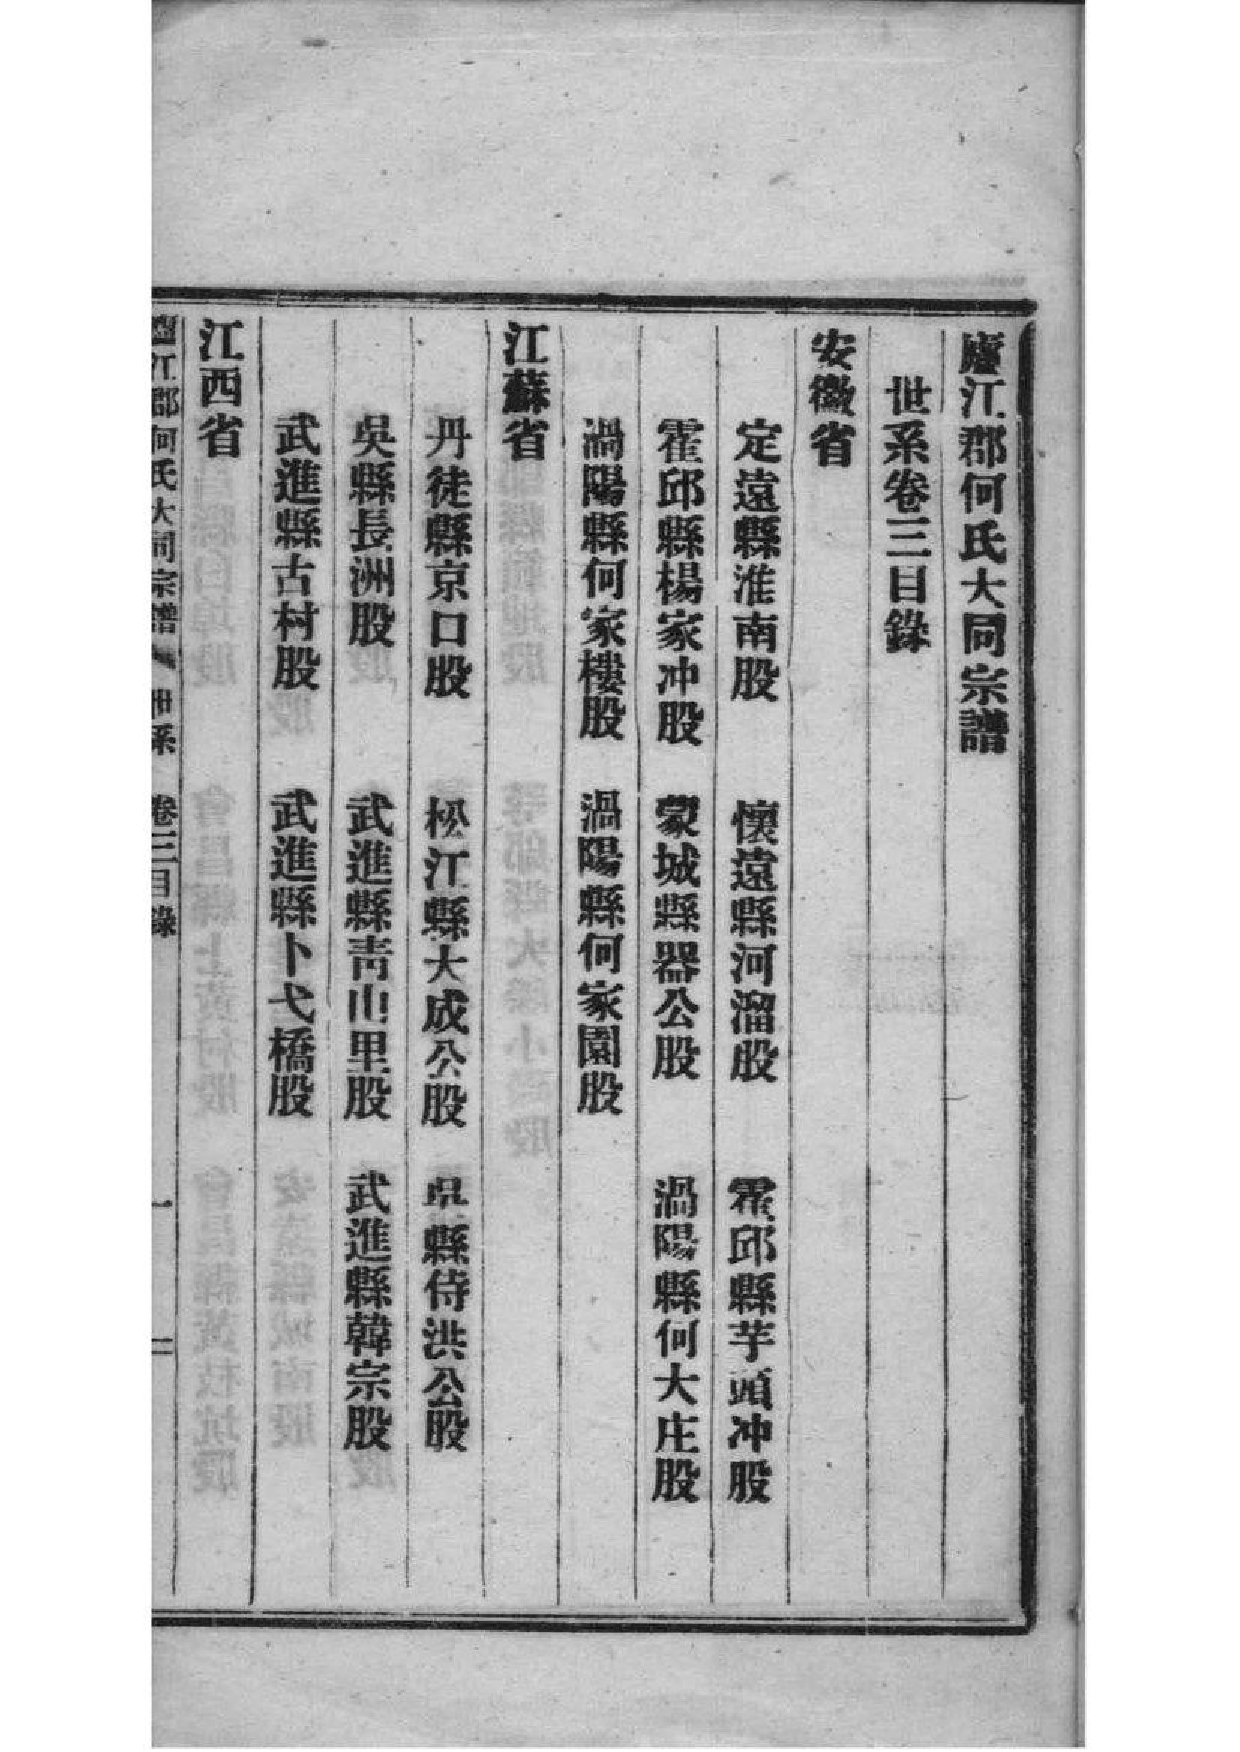 廬江郡何氏大同宗譜
世系卷三目錄
安徽省
定遠縣淮南股　懷遠縣河溜股　霍邱縣芋頭冲股
霍邱縣楊家冲股　蒙城縣器公股　渦陽縣何大庄股
渦陽縣何家樓股　渦陽縣何家園股
江蘇省
丹徒縣京口股　松江縣大成公股　吳縣侍洪公股
吳縣長洲股　武進縣青山里股　武進縣韓宗股
武進縣古村股　武進縣卜弋橋股
江西省
廬江郡何氏大同宗譜　世系　卷三目錄　一